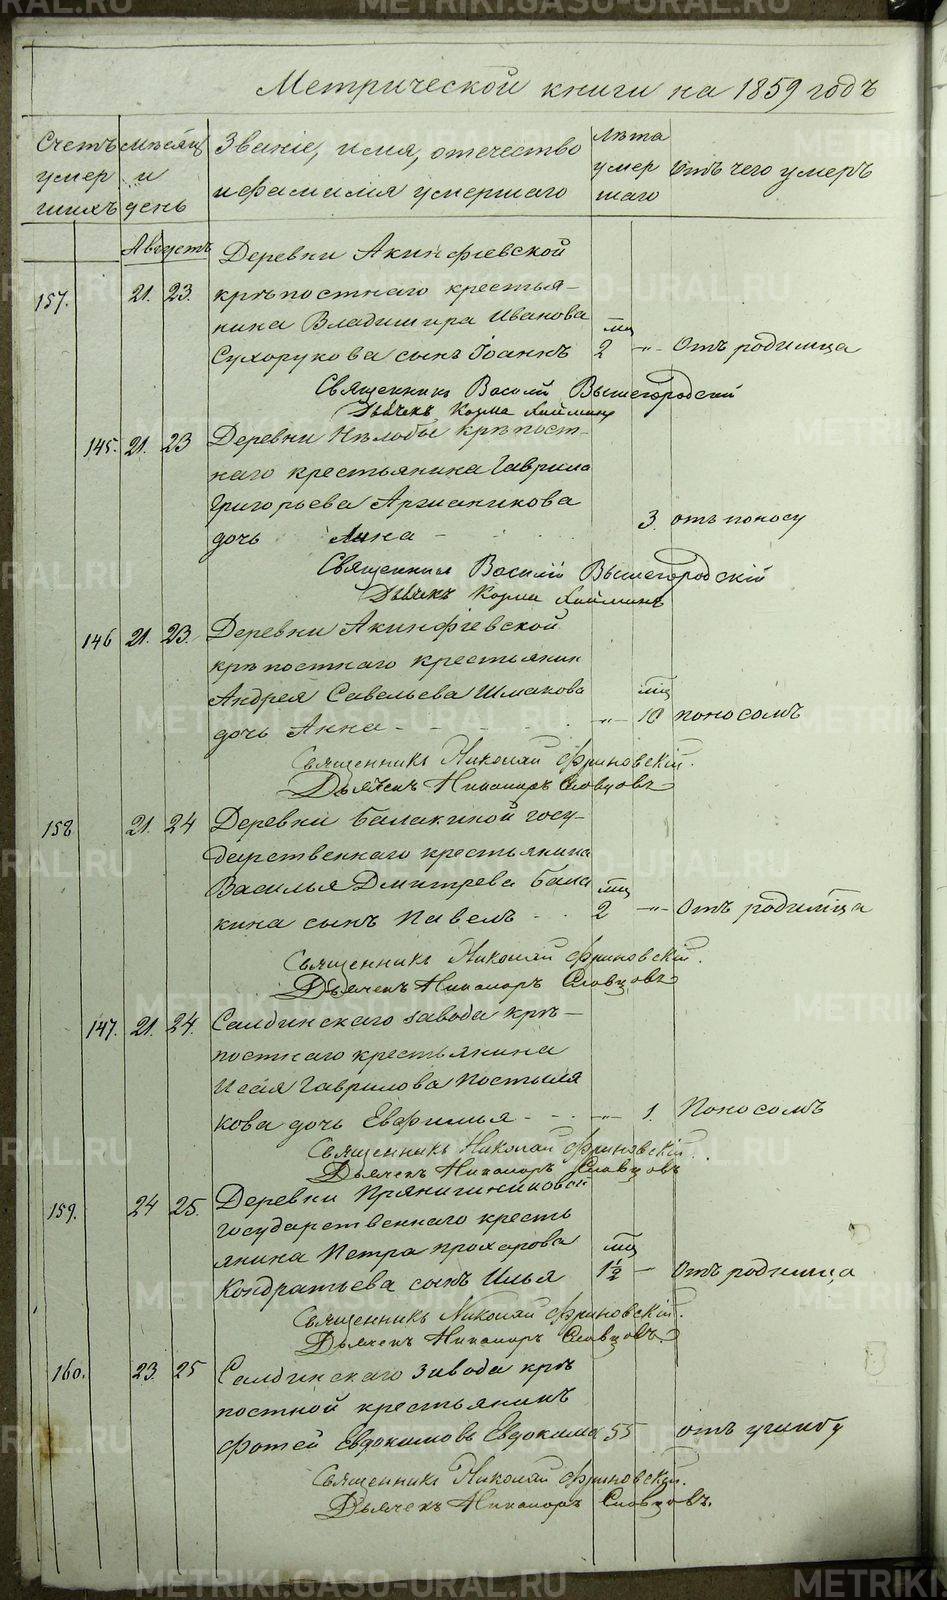 Метрической книги на 1859 годъ
Счетъ умершихъ
мѣсяц и день
Званіе, имя, отечество и фамилия умершаго
лѣта умершаго
отъ чего умеръ
Августъ
Деревни Акинфіевской
157. 21. 23. крѣпостнаго крестья-
нина Владимира Иванова мц
Сухорукова сынъ Іоаннъ 2 -"- Отъ родимца
Священникъ Василій Вышегородскій
Дьячекъ Козма
145. 21. 23 Деревни Нелобы крѣпост-
наго крестьянина Гаврила
Григорьева
дочь Анна - 3. отъ поносу
Священникъ Василій Вышегородскій
Дьячекъ Козма
146 21. 23. Деревни Акинфіевской
крѣпостнаго крестьянин
Андрея Савельева Шмакова мц
дочь Анна - -"- 10 поносомъ
Священникъ Николай Фриновскій.
Дьячекъ Никаноръ Словцовъ
158 21. 24 Деревни Балакиной госу-
дарственнаго крестьянина
Василья Дмитрева Бала мц
кина сынъ Павелъ - - 2 -"- Отъ родимца
Священникъ Николай Фриновскій.
Дьячекъ Никаноръ Словцовъ
147. 21. 24. Салдинскаго завода крѣ-
постнаго крестьянина
Исая Гаврилова Постыля
кова дочь Евфимья - - -"- 1. Поносомъ
Священникъ Николай Фриновскій
Дьячекъ Никаноръ Словцовъ
159. 24 25. Деревни Прянишниковой
государственнаго кресть
янина Петра Прохорова мц
Кондратьева сынъ Илья 1½ - Отъ родимца
Священникъ Николай Фриновскій.
Дьячекъ Никаноръ Словцовъ.
160. 23. 25 Салдинскаго завода крѣ
постной крестьянинъ
Фотей Евдокимовъ 55 отъ ушибу
Священникъ Николай Фриновскій.
Дьячекъ Никаноръ Словцовъ.
METRIKI.GASO-URAL.RU